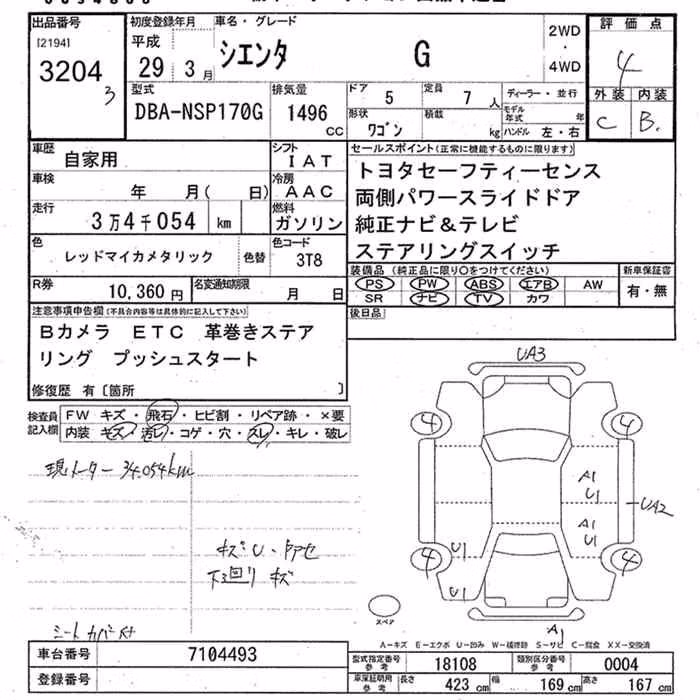 出品番号 初度登録年月 車名・グレード 2WD ・ 4WD 評価点
[2194] 平成 シエンタ G 4
3204 3 29年 3月
型式 排気量 ドア 定員 ディーラー・並行 外装 内装
DBA-NSP170G 1496 CC 5 7人 モデル年式 年 C B.
形状 積載 ハンドル 左・右
ワゴン kg
車歴 自家用 シフト IAT セールスポイント(正常に機能するものに限ります)
車検 年 月( 日) 冷房 AAC トヨタセーフティーセンス
走行 3万4千054 km 燃料 ガソリン 両側パワースライドドア
純正ナビ&テレビ
色 レッドマイカメタリック 色替 色コード 3T8 ステアリングスイッチ
装備品(純正品に限り○をつけてください) 新車保証書
R券 10,360円 名変通知期限 月 日 PS PW ABS エアB AW 有・無
SR ナビ TV カワ
注意事項申告欄(不具合内容等は具体的に記入して下さい) 後日品
Bカメラ ETC 革巻きステア
リング プッシュスタート
修復歴 有〔箇所 〕
UA3
検査員記入欄 FW キズ・飛石・ヒビ割・リペア跡・×要
内装 キズ・汚レ・コゲ・穴・スレ・キレ・破レ
4 4
現メーター 34,054km
A1
U1 UA2
A1
U1
キズU・
下廻り キズ
4 U1 4
U1
スペア
シートカバー付
A1
A-キズ E-エクボ U-凹み W-補修跡 S-サビ C-腐食 XX-交換済
車台番号 7104493 型式指定番号参考 18108 類別区分番号参考 0004
登録番号 車庫証明用参考 長さ 423cm 幅 169cm 高さ 167cm